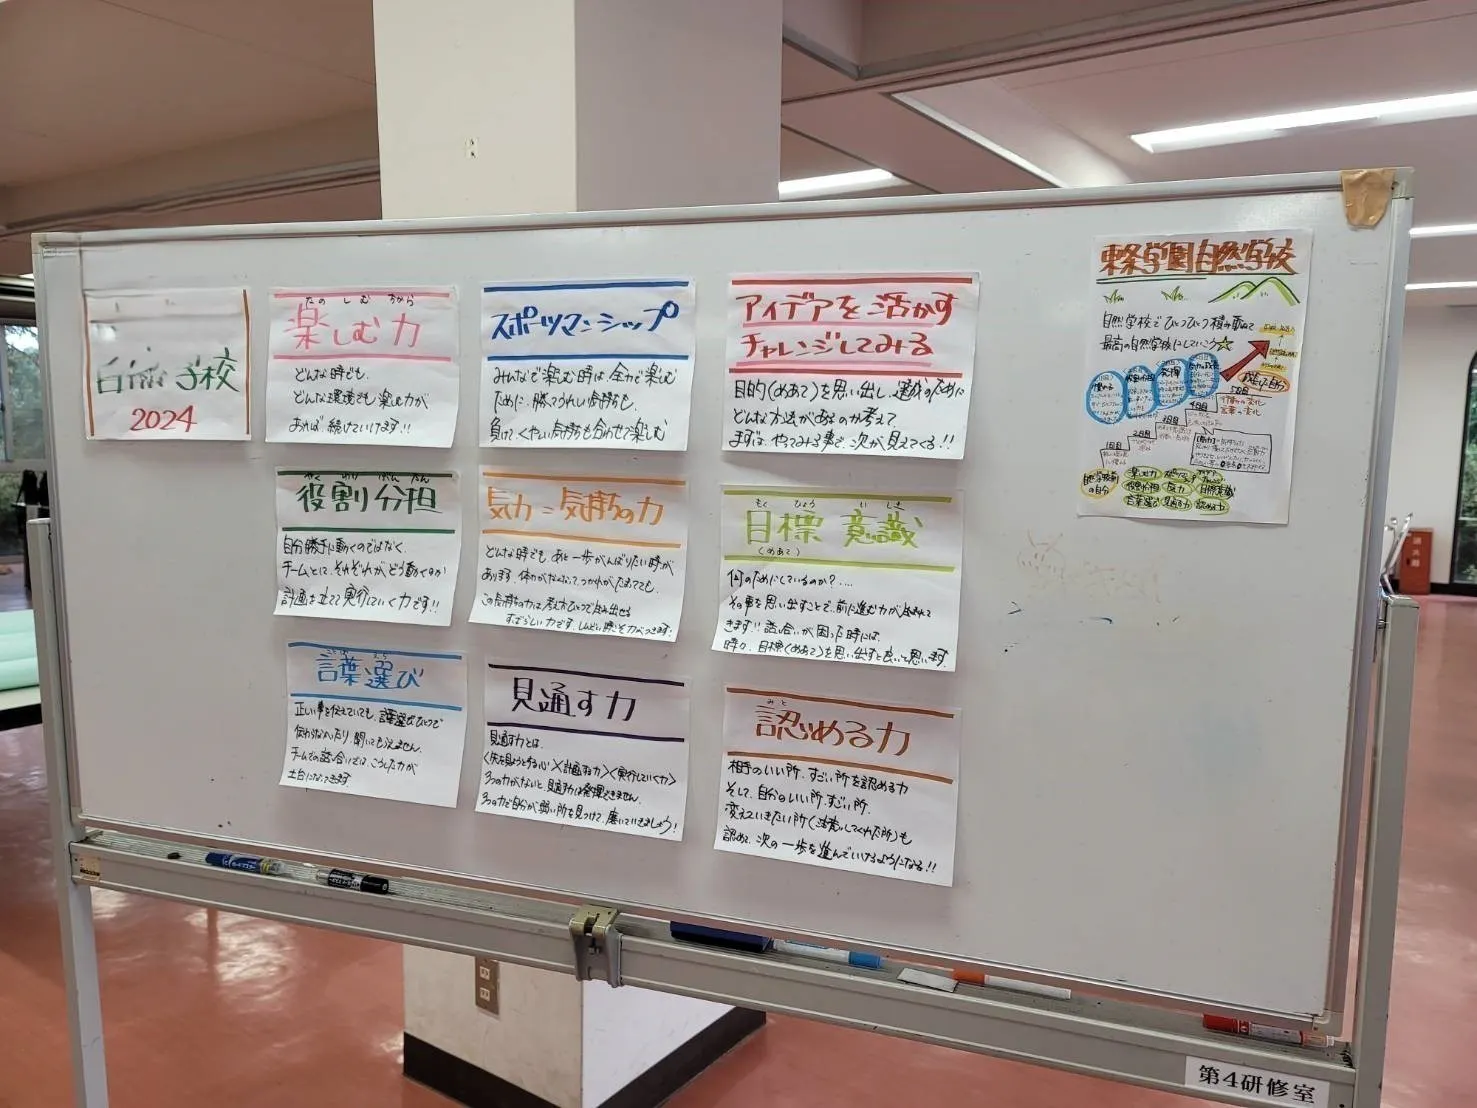 自然学校
2024
たのしむちから
楽しむ力
どんな時でも、
どんな環境でも楽しむ力が
あれば続けていけます!!
スポーツマンシップ
みんなで楽しむ時は、全力で楽しむ
ために、勝てうれしい気持ちも、
負けて、くやしい気持ちも合わせて楽しむ
アイデアを活かす
チャレンジしてみる
目的(めあて)を思い出し、達成のために
どんな方法があるのか考えて
まずは、やってみる事で、次が見えてくる!!
やくわりぶんたん
役割分担
自分勝手に動くのではなく、
チームとして、それぞれが、どう動くのか
計画を立てて実行していく力です!!
気力=気持ちの力
どんな時でも、あと一歩がんばりたい時が
あります。体力がなくなって、つかれがたまてても、
この気持ちの力は、考え方ひとつで生み出せる
すばらしい力です。
もくひょういしき
目標意識
(めあて)
何のためにしているのか?....
その事を思い出すことで、前に進む力が生まれて
きます!!話し合いが困った時には、
時々、目標(めあて)を思い出すと良いと思います。
ことばえらび
言葉選び
正しい事を伝えていても、言葉選びひとつで
伝わらなかったり、聞いてもらえません。
チームでの話し合いでは、こうした力が
土台になってきます。
見通す力
見通す力とは、
〈先を見ようとする心〉×〈計画する力〉×〈実行していく力〉
3つの力がないと、見通す力は発揮できません。
3つの力で自分が弱い所を見つけて、磨いていきましょう!
みと
認める力
相手のいい所、すごい所を認める力
そして、自分のいい所、すごい所、
変えていきたい所(注意してくれた所)も
認めて、次の一歩を進んでいけるようになる!!
東条学園自然学校
自然学校でひとつひとつ積み重ねて
最高の自然学校にしていこう☆
5日目
4日目
3日目
2日目
1日目
自然学校前
の自分
楽しむ力
役割分担
気力
目標意識
言葉選び
見通す力
認める力
第4研修室